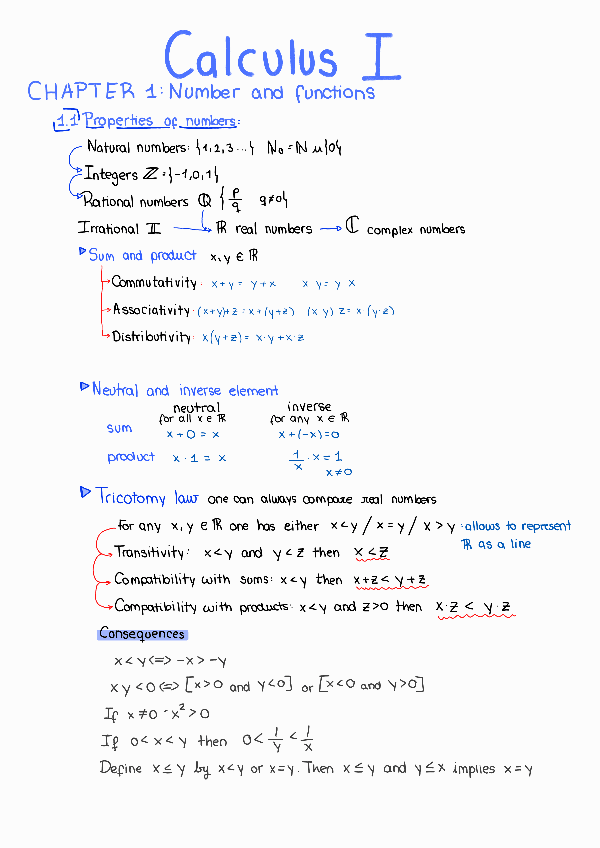 Calculus I
CHAPTER 1: Number and functions
1.1 Properties of numbers:
Natural numbers: {1,2,3...} N₀ = N u {0}
Integers ℤ = {-1,0,1}
Rational numbers ℚ { p/q q≠0}
Irrational 𝕀 → ℝ real numbers → ℂ complex numbers
Sum and product x, y ∈ ℝ
Commutativity: x+y = y+x x y = y x
Associativity: (x+y)+z = x+(y+z) (x y) z = x (y·z)
Distributivity: x(y+z) = x·y + x·z
Neutral and inverse element
neutral inverse
for all x ∈ ℝ for any x ∈ ℝ
sum x + 0 = x x+(-x)=0
product x · 1 = x 1/x · x = 1
x≠0
Tricotomy law one can always compare real numbers
for any x, y ∈ ℝ one has either x<y / x=y / x>y : allows to represent
ℝ as a line
Transitivity: x<y and y<z then x<z
Compatibility with sums: x<y then x+z < y+z
Compatibility with products: x<y and z>0 then x·z < y·z
Consequences
x<y <=> -x > -y
x y < 0 <=> [x>0 and y<0] or [x<0 and y>0]
If x ≠ 0 - x² > 0
If 0 < x < y then 0 < 1/y < 1/x
Define x ≤ y by x<y or x=y. Then x ≤ y and y ≤ x implies x = y